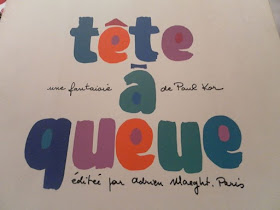 tête
une fantaisie de Paul Kor
à
queue
éditée par adrien Maeght. Paris